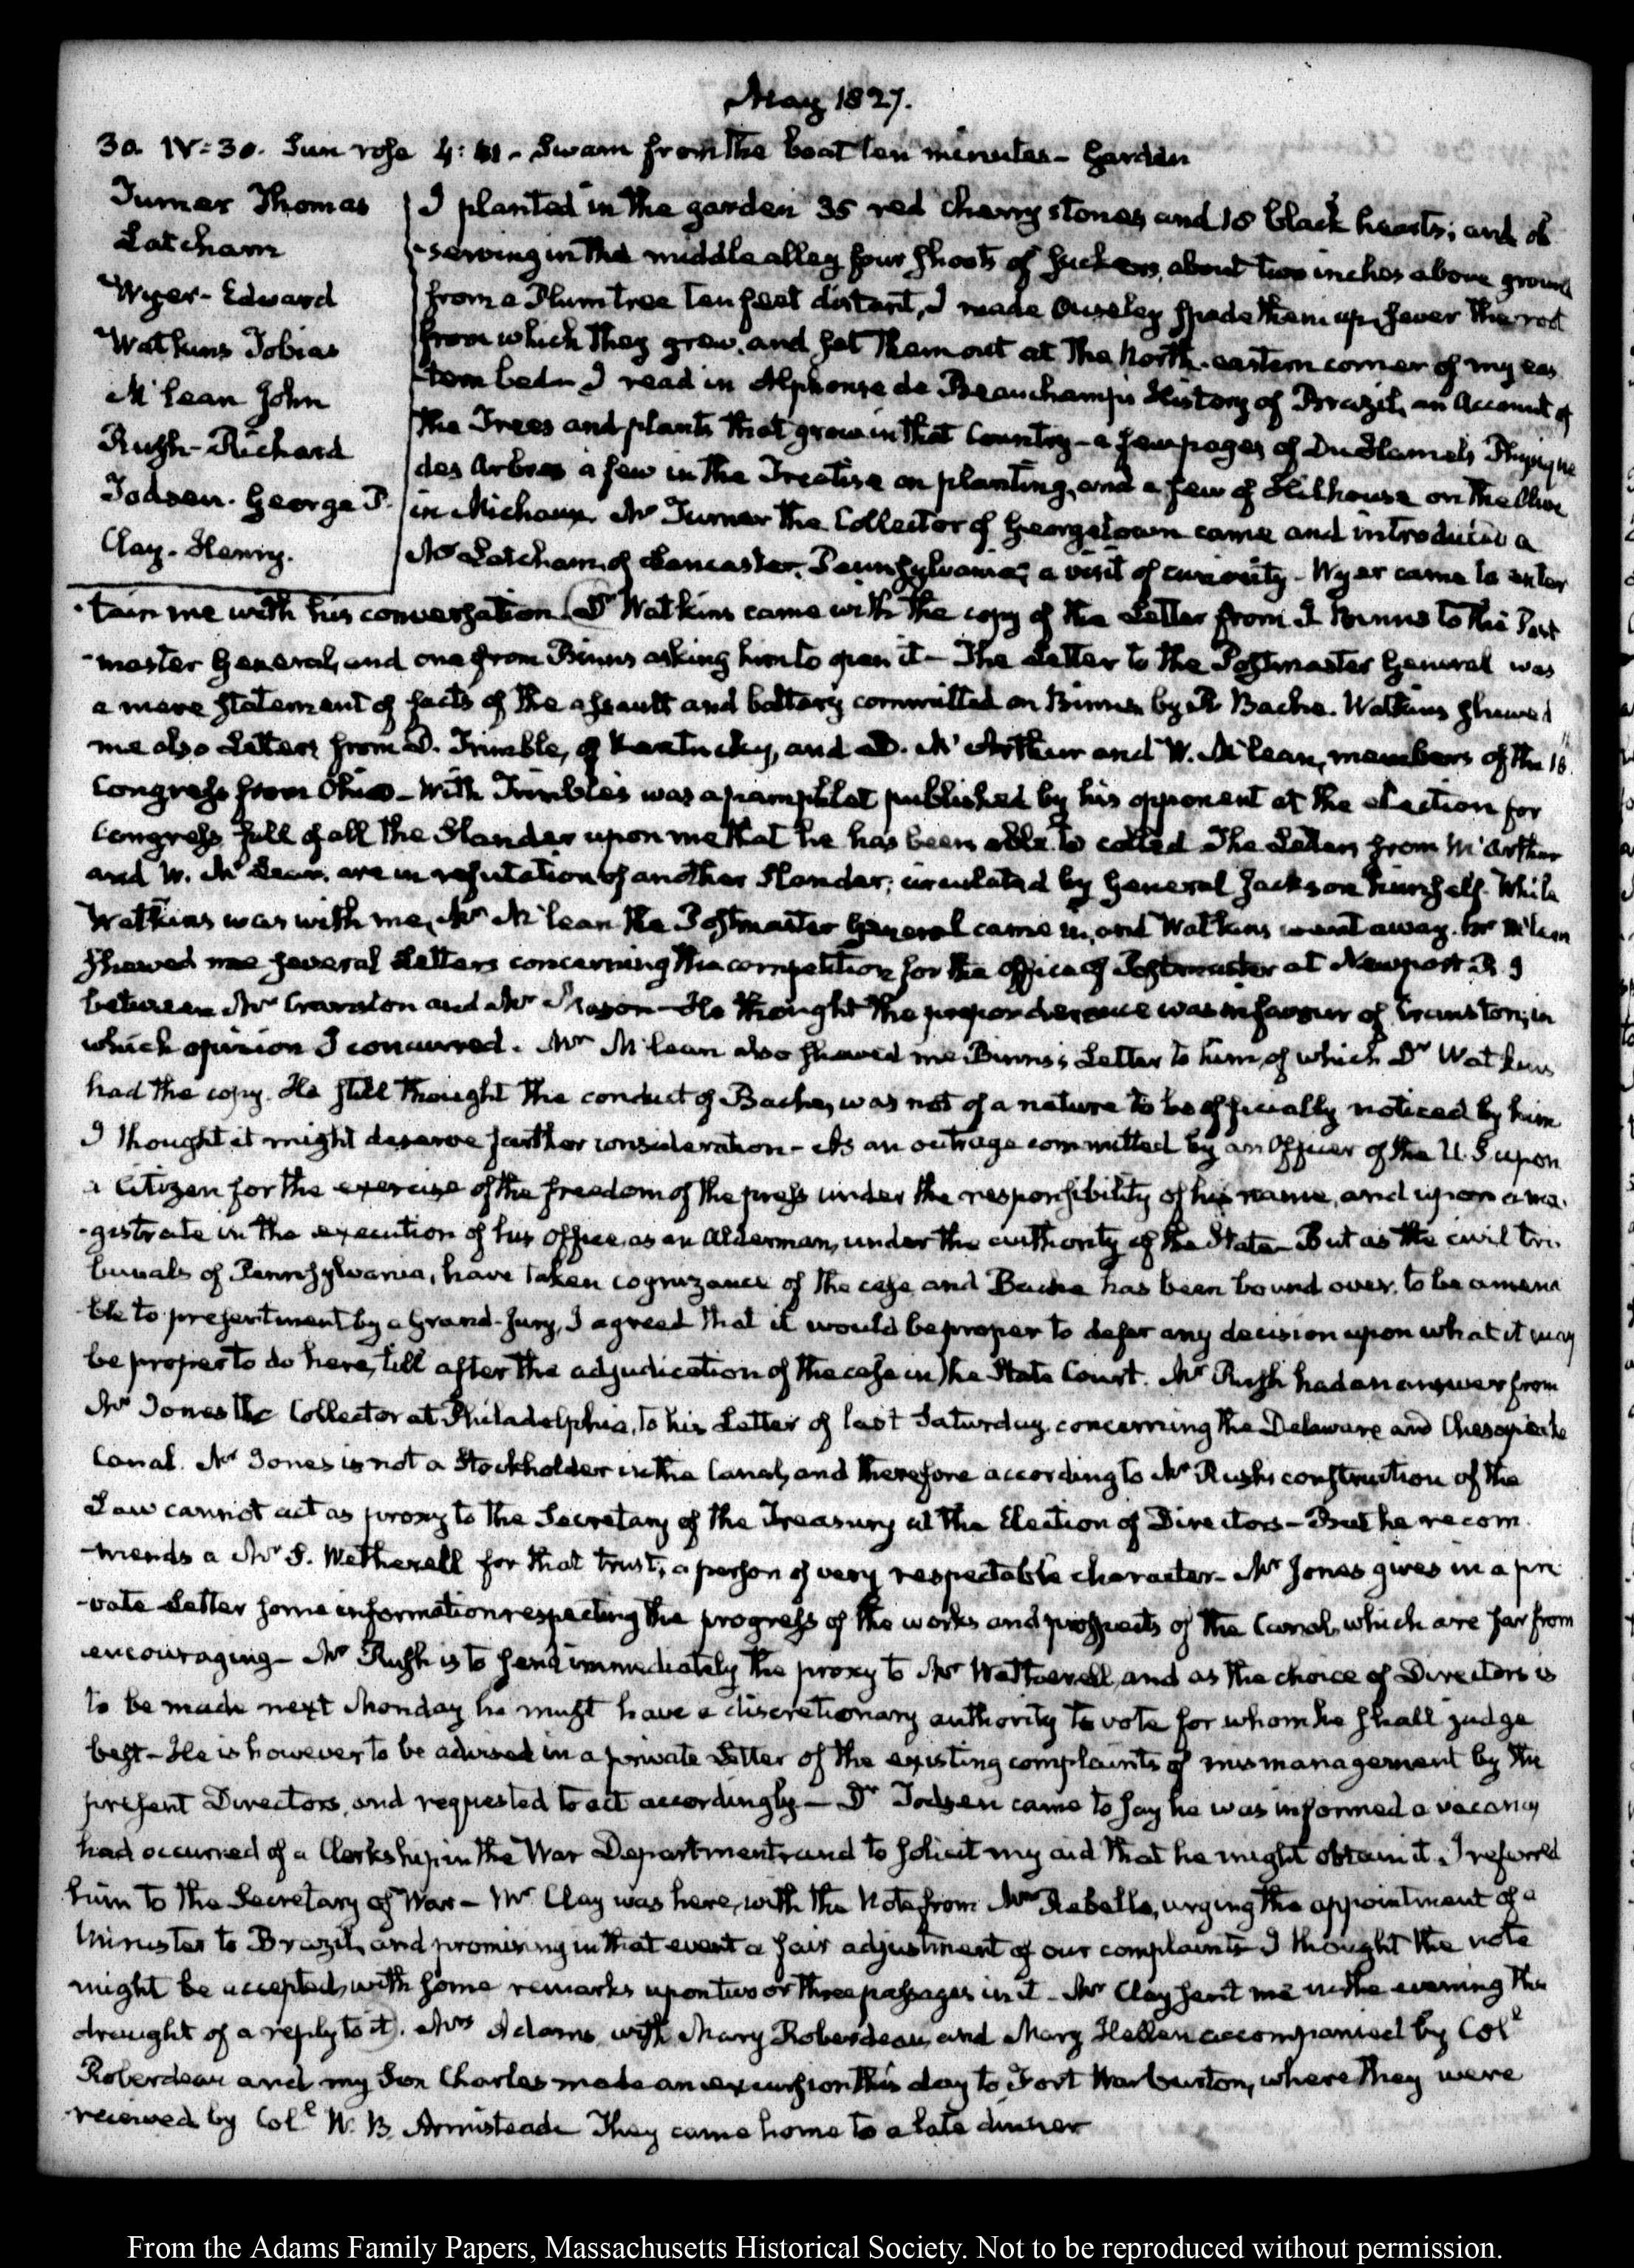 May 1827.
30. IV:30. Sun rose 4:41. Swam from the boat ten minutes - Garden
Turner Thomas
Latcham
Wyer - Edward
Watkins Tobias
McLean John
Rush - Richard
Todsen. George P.
Clay - Henry.
I planted in the garden 35 red cherry stones and 18 black hearts; and ob
-serving in the middle alley four shoots of suckers, about two inches above ground
from a Plumtree ten feet distant, I made Ouseley spade them up, sever the root
from which they grew, and set them out at the North-eastern corner of my eas
-tern bed. I read in Alphonse de Beauchamp's History of Brazil, an Account of
the Trees and plants that grow in that Country - a few pages of DuHamel's Physique
des Arbres a few in the Treatise on planting, and a few of Hilhouse on the Olive
in Michaux. Mr Turner the Collector of Georgetown came and introduced a
Mr Latcham, of Lancaster, Pennsylvania; a visit of curiosity - Wyer came to enter
-tain me with his conversation. Dr Watkins came with the copy of the Letter from J. Binns to the Post
-master General, and one from Binns asking him to open it - The Letter to the Postmaster General was
a mere statement of facts of the assault and battery committed on Binns by R. Bache. Watkins shewed
me also Letters from D. Trimble, of Kentucky, and D. McArthur and W. McLean, members of the 18th
Congress from Ohio - With Trimble's was a pamphlet published by his opponent at the election for
Congress full of all the Slander upon me that he has been able to collect. The Letters from McArthur
and W. McLean, are in refutation of another Slander, circulated by General Jackson himself. While
Watkins was with me, Mr McLean the Postmaster General came in, and Watkins went away. Mr McLean
shewed me several Letters concerning the competition for the office of Postmaster at Newport R. I
between Mr Cranston and Mr Mason - He thought the preponderance was in favour of Cranston; in
which opinion I concurred. Mr McLean also shewed me Binns's Letter to him, of which Dr Watkins
had the copy. He still thought the conduct of Bache, was not of a nature to be officially noticed by him
I thought it might deserve further consideration - As an outrage committed by an Officer of the U. S upon
a Citizen for the exercise of the freedom of the press under the responsibility of his name, and upon a ma-
-gistrate in the execution of his office, as an Alderman, under the authority of the State - But as the civil tri-
bunals of Pennsylvania, have taken cognizance of the case and Bache has been bound over, to be amena
-ble to presentment by a Grand-Jury, I agreed that it would be proper to defer any decision upon what it may
be proper to do here, till after the adjudication of the case in the State Court. Mr Rush had an answer from
Mr Jones the Collector at Philadelphia, to his Letter of last Saturday, concerning the Delaware and Chesapeake
Canal. Mr Jones is not a Stockholder in the Canal, and therefore according to Mr Rush's construction of the
Law cannot act as proxy to the Secretary of the Treasury at the Election of Directors - But he recom-
-mends a Mr S. Wetherell for that trust; a person of very respectable character - Mr Jones gives in a pri
-vate Letter some information respecting the progress of the works and prospects of the Canal, which are far from
encouraging - Mr Rush is to send immediately the proxy to Mr Wetherell, and as the choice of Directors is
to be made next Monday he must have a discretionary authority to vote for whom he shall judge
best - He is however to be advised in a private Letter of the existing complaints of mismanagement by the
present Directors, and requested to act accordingly - Dr Todsen came to say he was informed a vacancy
had occurred of a Clerkship in the War Department, and to solicit my aid that he might obtain it. I referred
him to the Secretary of War - Mr Clay was here, with the Note from Mr Rebello, urging the appointment of a
Minister to Brazil, and promising in that event a fair adjustment of our complaints. I thought the note
might be accepted, with some remarks upon two or three passages in it - Mr Clay sent me in the evening the
draught of a reply to it. Mrs Adams, with Mary Roberdeau, and Mary Hellen accompanied by Coll
Roberdeau and my Son Charles made an excursion this day to Fort Warburton, where they were
received by Coll W. B. Armistead. They came home to a late dinner
From the Adams Family Papers, Massachusetts Historical Society. Not to be reproduced without permission.